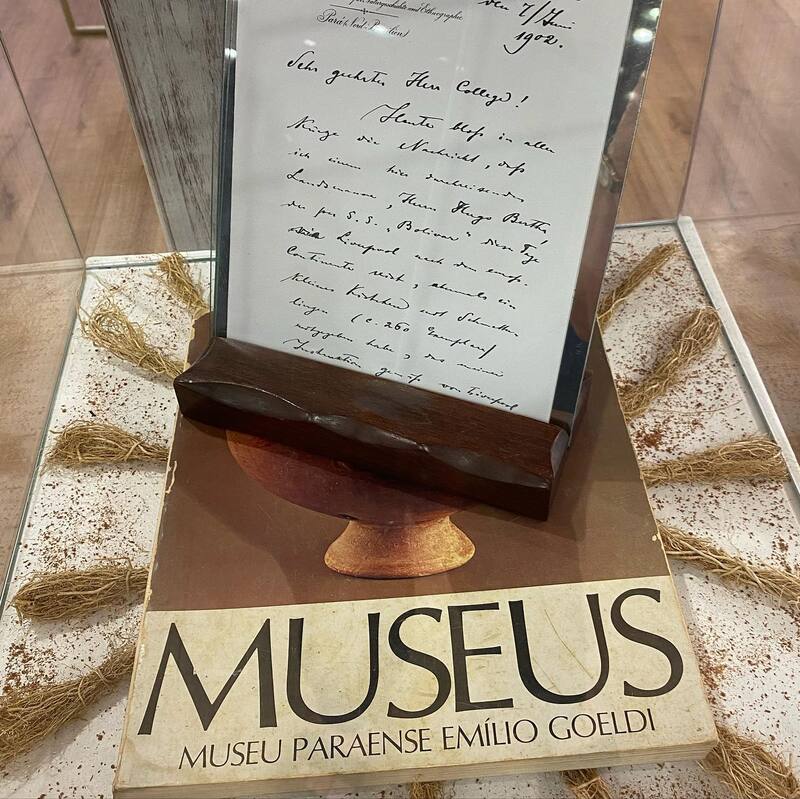 für Naturgeschichte und Ethnographie
Pará (Nord-Brasilien)
den 7/Juni
1902.
Sehr geehrter Herr College!
Heute bloß in aller
Kürze die Nachricht, daß
ich einem hier durchreisenden
Landsmann, Herrn Hugo
der per S.S. "Bolivar" diese Tage
Liverpool nach dem europ.
Continente reist, abermals ein
kleines Kistchen mit Schmetter-
lingen (c. 260 Exemplare)
mitgegeben habe, das meiner
Instruction gemäß von Liverpool
MUSEUS
MUSEU PARAENSE EMÍLIO GOELDI